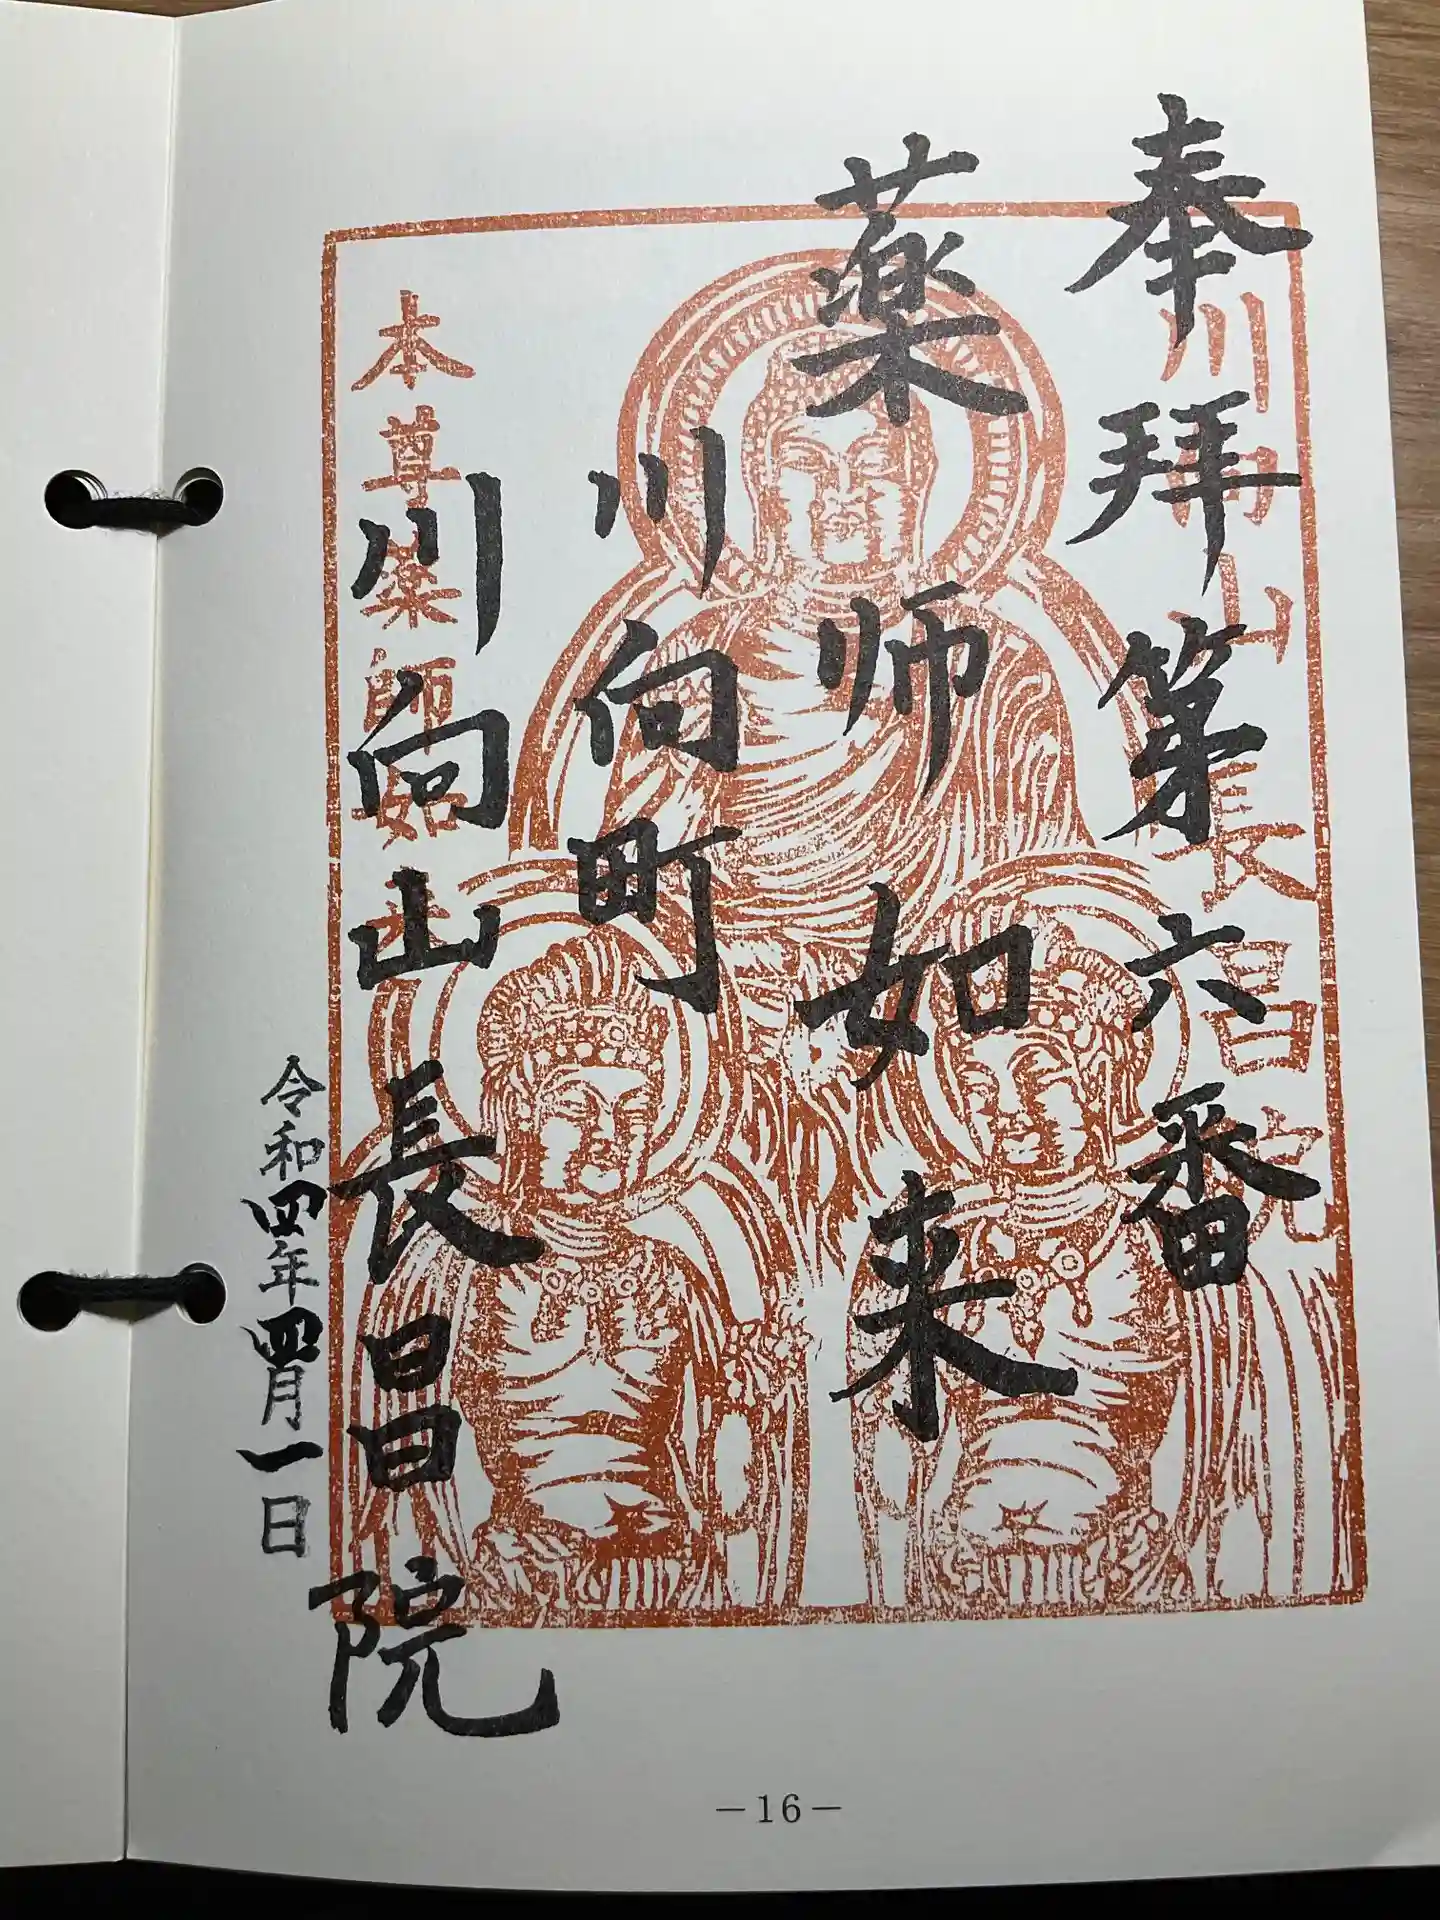 奉拝第六番
川向山長昌院
薬师如来
川向町
本尊薬師如来
川向山長昌院
令和四年四月一日
－16－